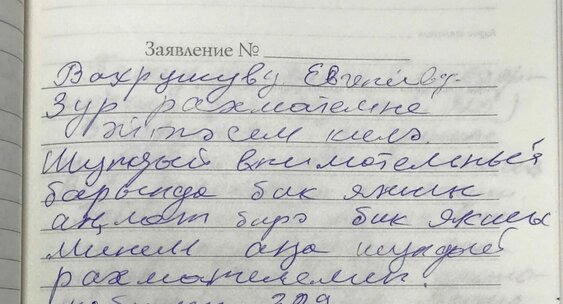 Заявление №
Вахрушуву Евгениву.
Зур рахматемне
әйтәсем килә.
Шундый внимотельный
барында бик яхшы
аңлата барә бик яхшы
Минем аңа шундый
рахматлемин.
209